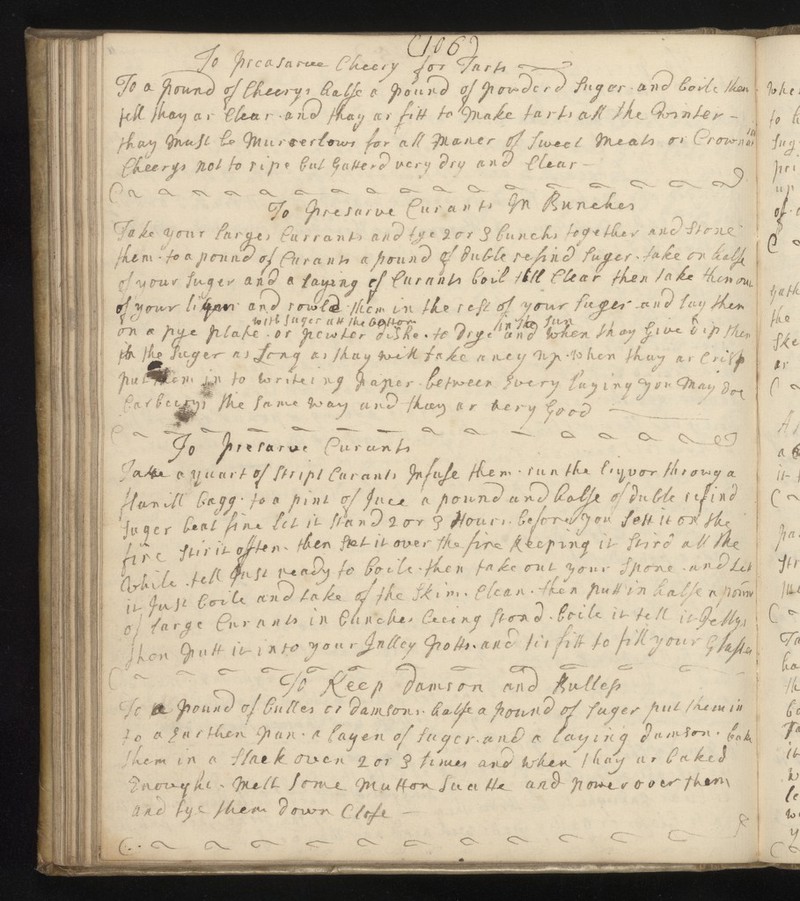 (106)
To preasarve Cheery for Tarts
To a pound of Cheerys halfe a pound of powderd Suger and boile them
tell thay ar Clear and thay ar fitt to make tarts all the Winter
thay must be Murrerlows for all maner of Sweet meats or Crown in
Cheerys not to ripe but Gatterd very dry and Clear
To presarve Curants In Bunches
Take your Larges Currants and tye 2 or 3 bunchs together and Stone
them to a pound of Curants a pound of duble refind Suger take on halfe
of your Suger and a laying of Curants boil till Clear then take them out
of your liquor and rowld them in the rest of your Suger and lay them
with Suger att the bottom in the Sun
on a pye plate or pewter dishe to drye and when thay Give dip them
in the Suger as Long as thay will take aney up when thay ar Crisp
put them in to writeing paper between every laying you may doe
barbearys the Same way and thay ar very Good
To presarve Curants
Take a quart of Stript Curants Infuse them run the liqvor throwg a
flanill bagg to a pint of Juce a pound and halfe of duble refind
Suger beat fine let it Stand 2 or 3 Hours before you Sett it on the
fire Stir it often then Set it over the fire keeping it Stird all the
While tell Just ready to boile then take out your Spone and Let
it Just boile and take of the Skim Clean then putt in halfe a poun
of large Curants in bunches being Stond boile it tell it Jellys
then putt it into your Jelley potts and tis fitt to fill your Glasses
To Keep Damson and Bulless
To a pound of bulles or damsons halfe a pound of Suger put them in
to a Earthen pan a layen of Suger and a laying damson bake
them in a Slack oven 2 or 3 times and when thay ar baked
Enought melt Some Mutton Suatte and power over them
and tye them down Close